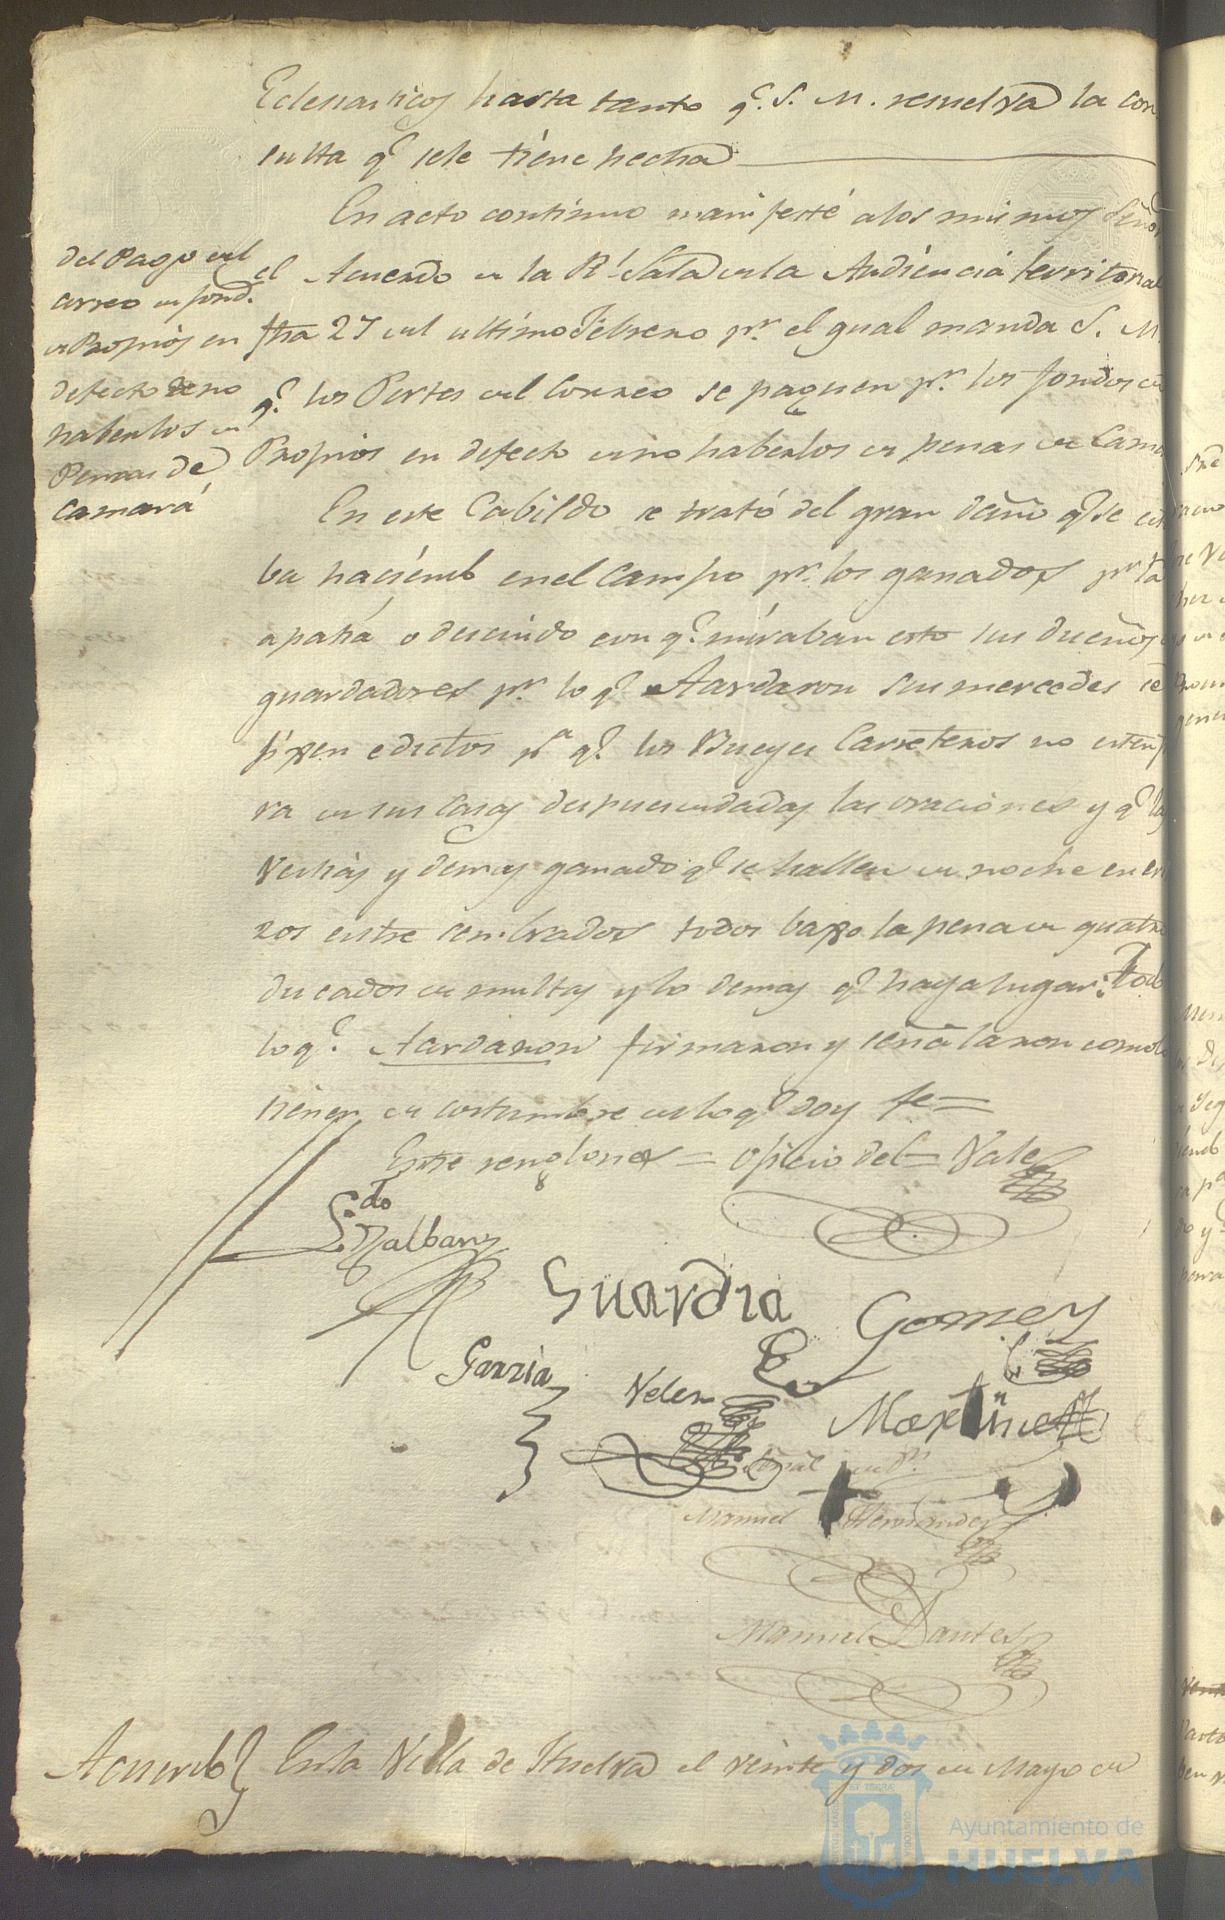 Eclesiasticos hasta tanto q.e S. M. resuelva la con
sulta q.e sele tiene hecha
En acto continuo manifesté alos mismos Señor
del Pago del
correo de fond.s
de Propios en
defecto de no
haberlos de
Penas de
Camara
el Acuerdo de la R.l Sala de la Audiencia territorial
fha 27 del ultimo Febrero p.r el qual manda S. M.
q.e los Portes del Correo se paguen p.r los fondos de
Propios en defecto de no haberlos de penas de Cama
En este Cabildo se trató del gran daño q.e se esta
ba haciendo en el Campo p.r los ganados p.r la
apatia o descuido con q.e miraban esto sus dueños
guardadores p.r lo q.e Acordaron sus mercedes se
fixen edictos p.a q.e los Bueyes Carreteros no esten
ra de sus Casas despues de dadas las oraciones y q.e las
Vestias y demas ganado q.e se hallen de noche en
zos entre sembrados todos baxo la pena de quatro
ducados de multas y lo demas q.e haya lugar: Todo
lo q.e Acordaron firmaron y señalaron como lo
tienen de costumbre de lo q.e doy fe=
Entre renglones = oficio del = Vale
L.do Malbany
Guardia
Gomez
Garzia
Velez
Martinez
Señal de
Manuel + Hernandez
Manuel Dantes
Acuerdo } En la Villa de Huelva el veinte y dos de Mayo de
Ayuntamiento de
HUELVA